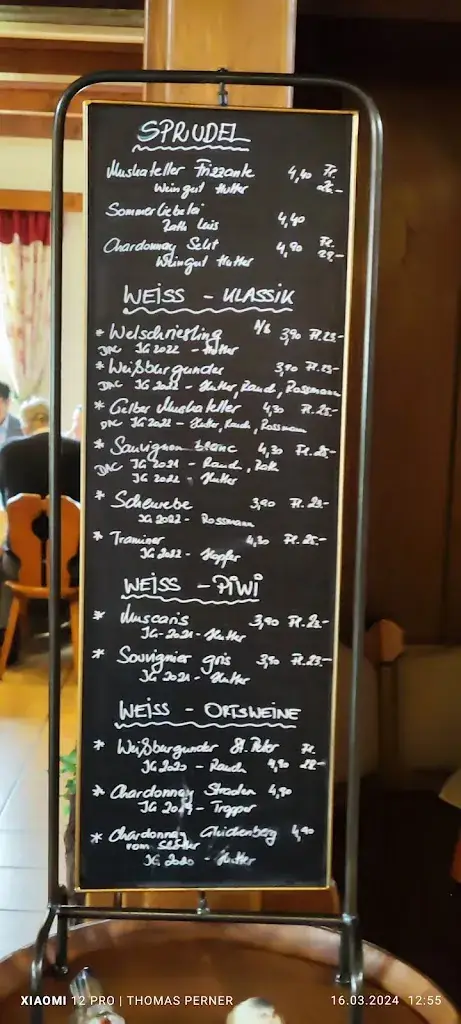 SPRUDEL
Muskateller Frizzante 4,40 Fl.
Weingut Hutter 26.-
Sommerliebelei
Rath Luis 4,40
Chardonnay Sekt 4,90 Fl.
Weingut Hutter 29.-
WEISS - KLASSIK
* Welschriesling 1/8 3,90 Fl. 23.-
DAC JG 2022 - Hutter
* Weißburgunder 3,90 Fl. 23.-
DAC JG 2022 - Hutter, Rauch, Rossmann
* Gelber Muskateller 4,30 Fl. 25.-
DAC JG 2022 - Hutter, Rauch, Rossmann
* Sauvignon blanc 4,30 Fl. 25.-
DAC JG 2021 - Rauch, Rath
JG 2022 - Hutter
* Scheurebe 3,90 Fl. 23.-
JG 2022 - Rossmann
* Traminer 4,30 Fl. 25.-
JG 2022 - Hopfer
WEISS - PIWI
* Muscaris 3,90 Fl. 23.-
JG - 2021 - Hutter
* Souvignier gris 3,90 Fl. 23.-
JG 2021 - Hutter
WEISS - ORTSWEINE
* Weißburgunder St. Peter Fl.
JG 2020 - Rauch 4,90 28.-
* Chardonnay Straden 4,90
JG 2019 - Tropper
* Chardonnay Gleichenberg 4,90
vom Schotter
JG 2020 - Hutter
XIAOMI 12 PRO | THOMAS PERNER 16.03.2024 12:55